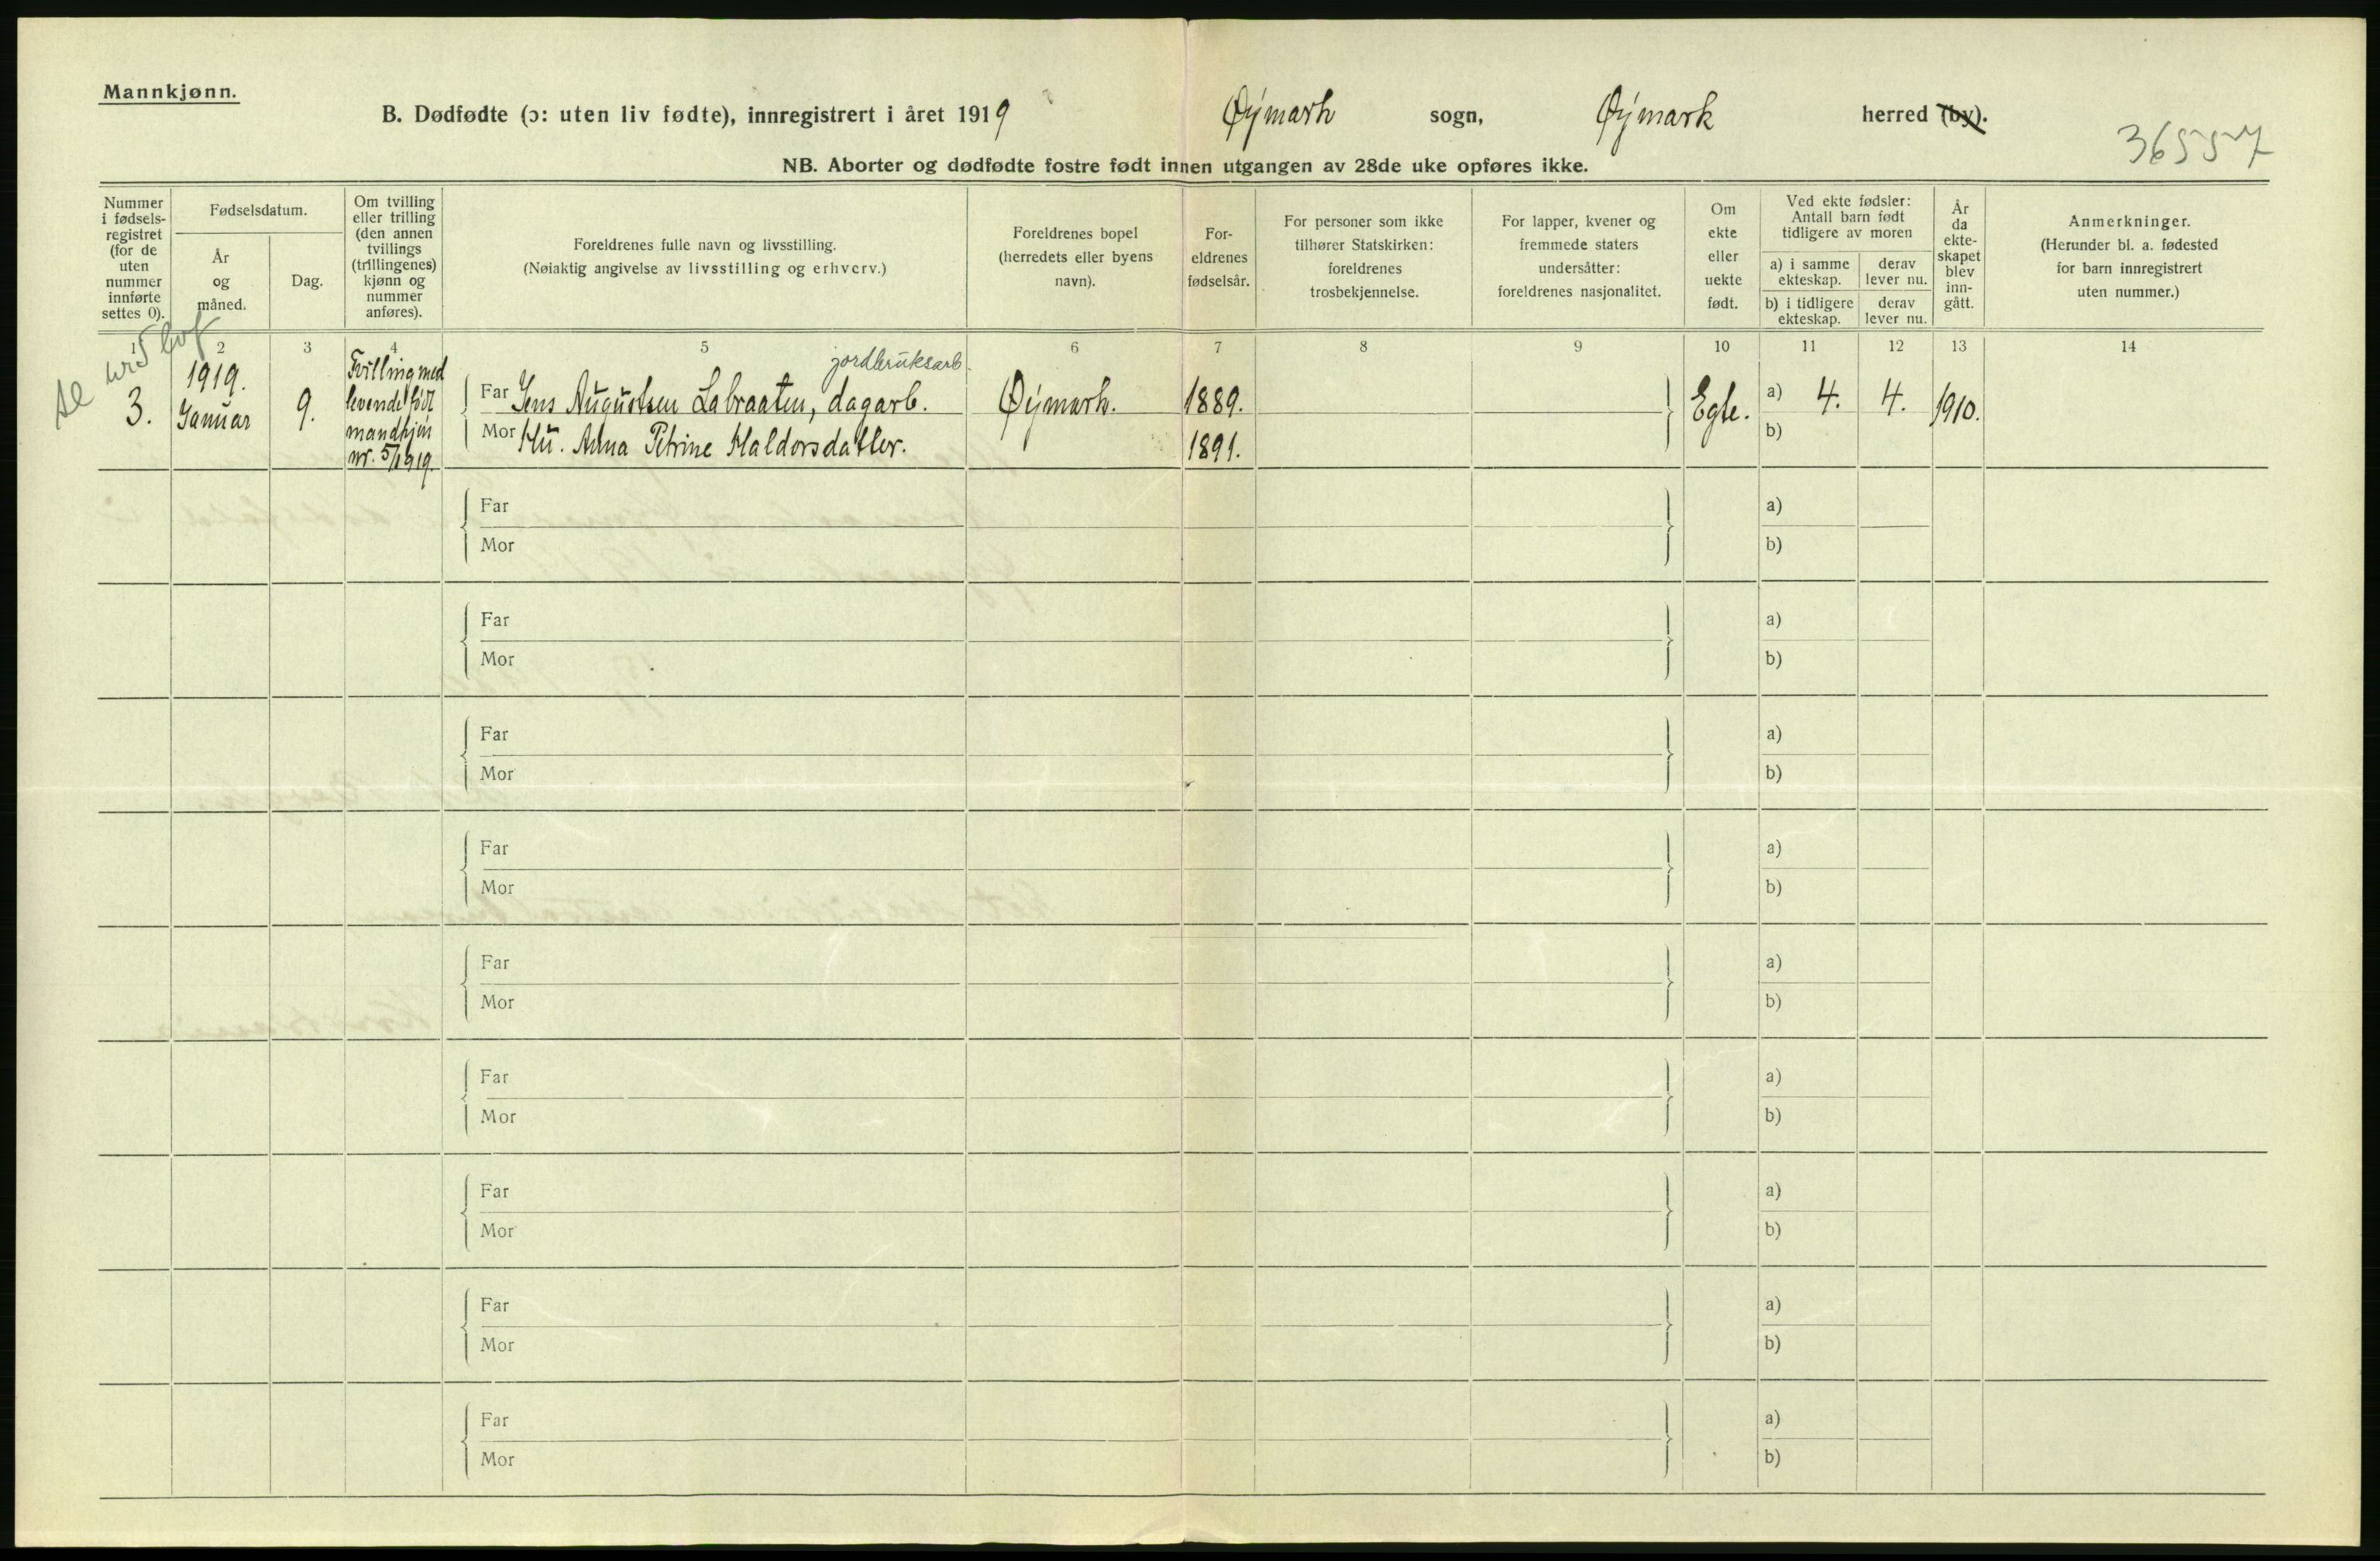 Mannkjønn.
B. Dødfødte (ɔ: uten liv fødte), innregistrert i året 1919 Øymark sogn, Øymark herred (by).
36557
NB. Aborter og dødfødte fostre født innen utgangen av 28de uke opføres ikke.
Nummer i fødsels-registret (for de uten nummer innførte settes 0).
Fødselsdatum.
År og måned.
Dag.
Om tvilling eller trilling (den annen tvillings (trillingenes) kjønn og nummer anføres).
Foreldrenes fulle navn og livsstilling.
(Nøiaktig angivelse av livsstilling og erhverv.)
Foreldrenes bopel (herredets eller byens navn).
For-eldrenes fødselsår.
For personer som ikke tilhører Statskirken: foreldrenes trosbekjennelse.
For lapper, kvener og fremmede staters undersåtter: foreldrenes nasjonalitet.
Om ekte eller uekte født.
Ved ekte fødsler: Antall barn født tidligere av moren
a) i samme ekteskap.
derav lever nu.
b) i tidligere ekteskap.
derav lever nu.
År da ekte-skapet blev inn-gått.
Anmerkninger.
(Herunder bl. a. fødested for barn innregistrert uten nummer.)
1 2 3 4 5 6 7 8 9 10 11 12 13 14
3. 1919. Januar 9.
Tvilling med
levende født
mandkjøn
nr. 5/1919.
jordbruksarb.
Far Jens Augustsen Labraaten, dagarb. Øymark. 1889. Egte. a) 4. 4. 1910.
Mor Hu. Anna Petrine Haldorsdatter. 1891. b)
Far a)
Mor b)
Far a)
Mor b)
Far a)
Mor b)
Far a)
Mor b)
Far a)
Mor b)
Far a)
Mor b)
Far a)
Mor b)
Far a)
Mor b)
Far a)
Mor b)